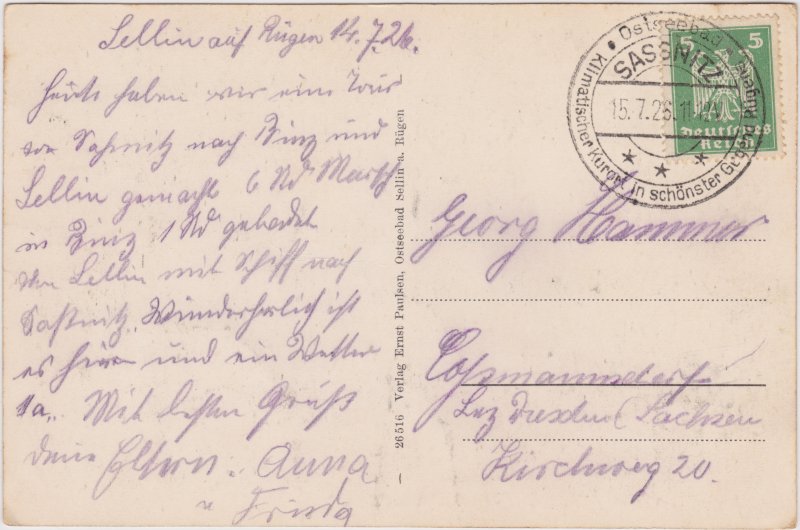 Sellin auf Rügen 14.7.26.
Heute haben wir eine Tour
von Saßnitz nach Binz und
Sellin gemacht 6 Std Marsch
in Binz 1 Std gebadet
von Sellin mit Schiff nach
Saßnitz. Wunderherrlich ist
es hier und ein Wetter
1a. Mit besten Gruß
deine Eltern. Anna
u Frieda
26516 Verlag Ernst Paulsen, Ostseebad Sellin a. Rügen
Ostseebad
SASSNITZ
15.7.26.11-12
Klimatischer Kurort in schönster Gegend Rügens
5 5
Deutsches
Reich
Georg Hammer
Coßmannsdorf
Bez Dresden (Sachsen
Kirchweg 20.